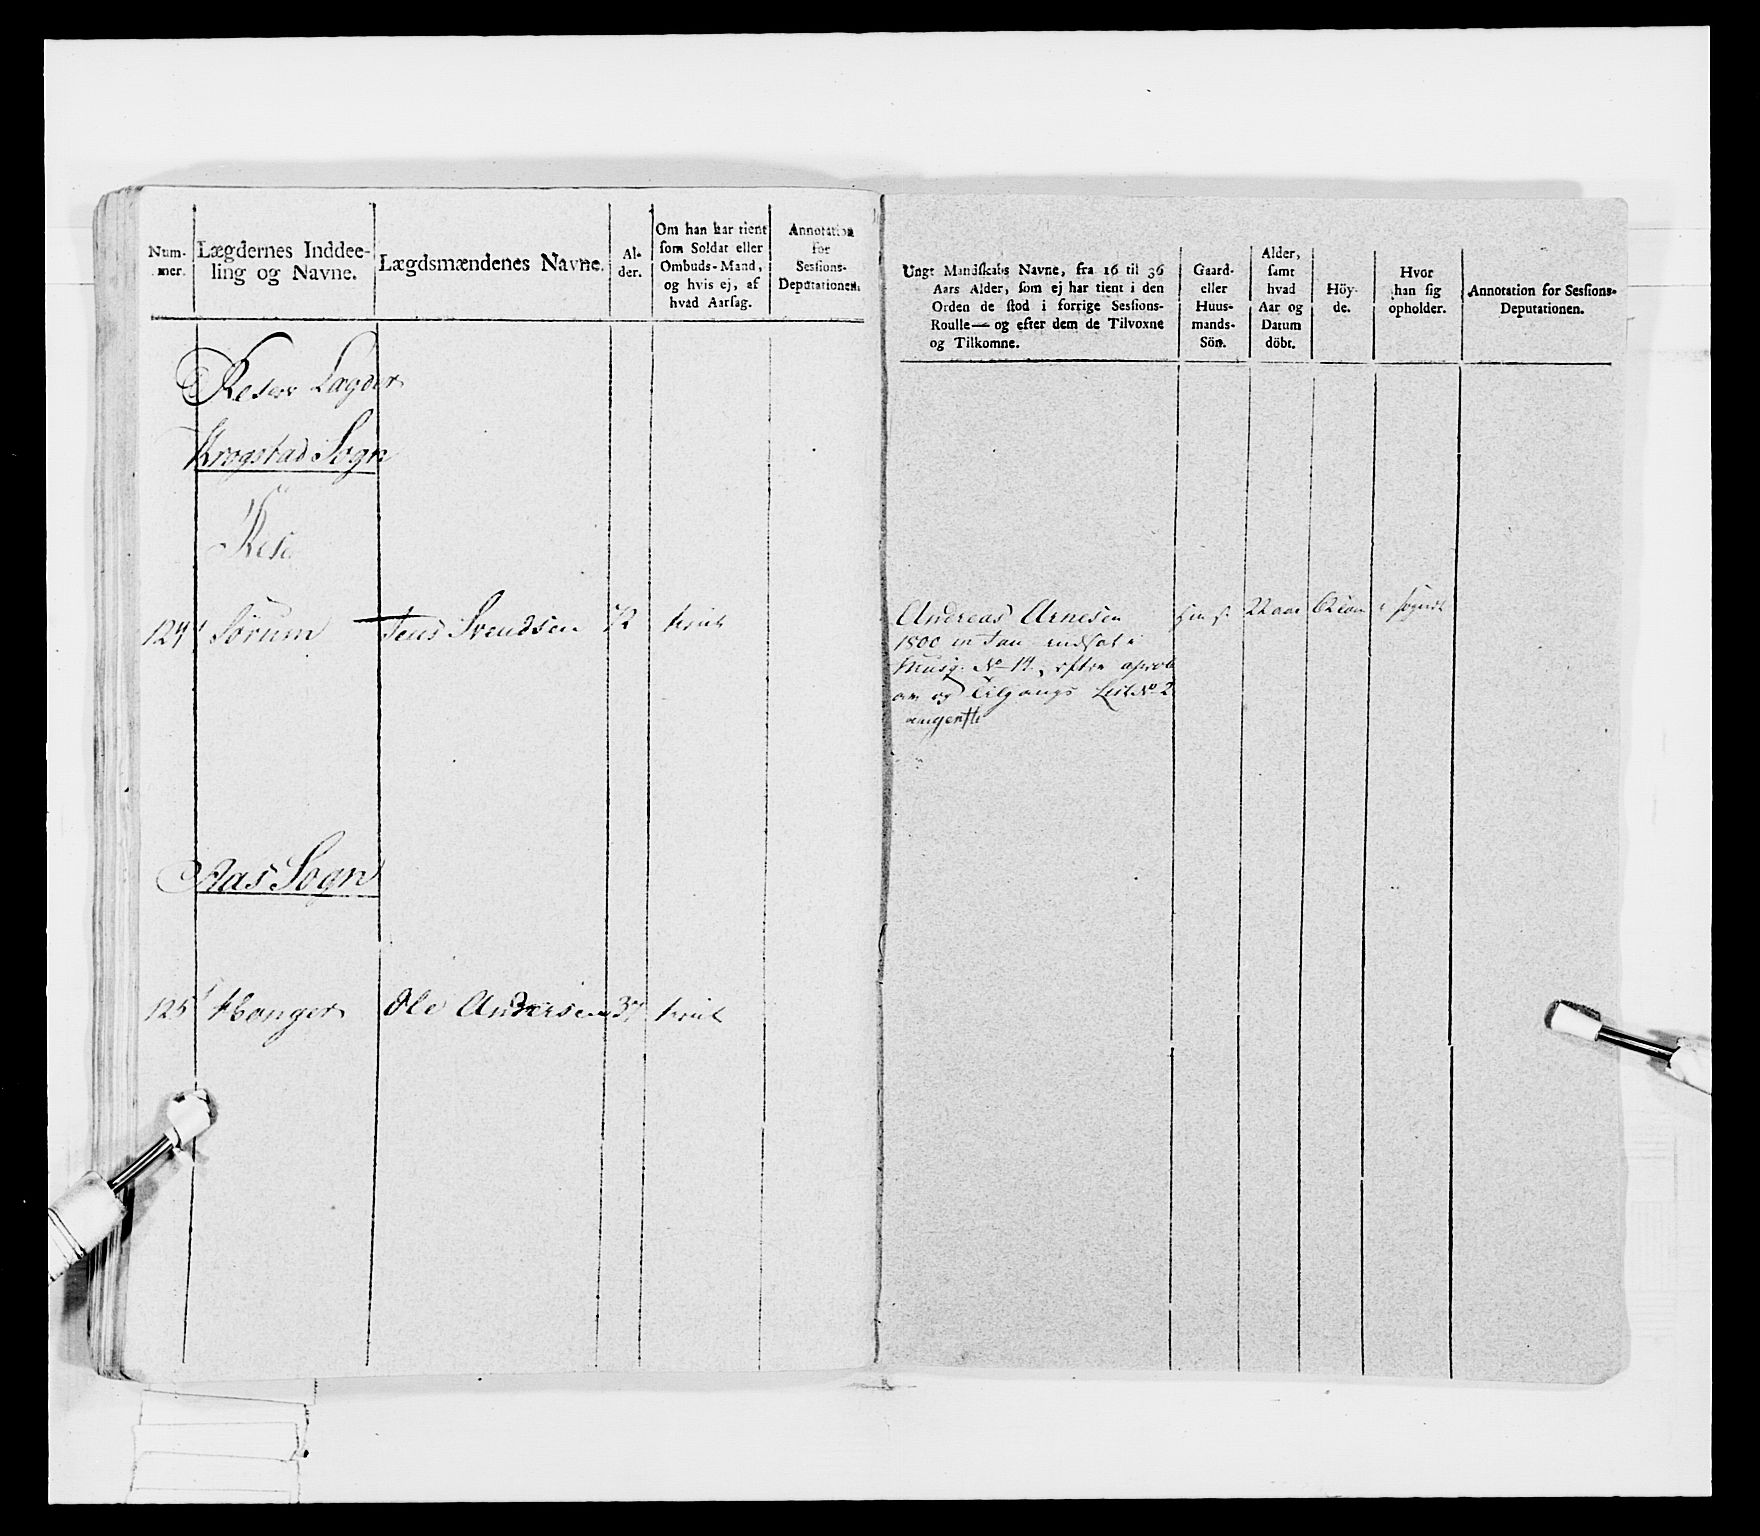 Num-
mer.
Lægdernes Inddee-
ling og Navne.
Lægdsmændenes Navne.
Al-
der.
Om han har tient
som Soldat eller
Ombuds-Mand,
og hvis ej, af
hvad Aarsag.
Annotation
for
Sessions-
Deputationen.
Reserv Lægder
Krogstad Sogn
124
Sørum
Jens Svendsen
72
Aas Sogn
125
Hanger
Ole Andersen
37
Ungt Mandskabs Navne, fra 16 til 36
Aars Alder, som ej har tient i den
Orden de stod i forrige Sessions-
Roulle — og efter dem de Tilvoxne
og Tilkomne.
Gaard-
eller
Huus-
mands-
Sön.
Alder,
samt
hvad
Aar og
Datum
döbt.
Höy-
de.
Hvor
han sig
opholder.
Annotation for Sessions-
Deputationen.
Andreas Arnesen
22 aar
i Sognet
1800
Musq. No 14, efter
og Tilgangs List No 2